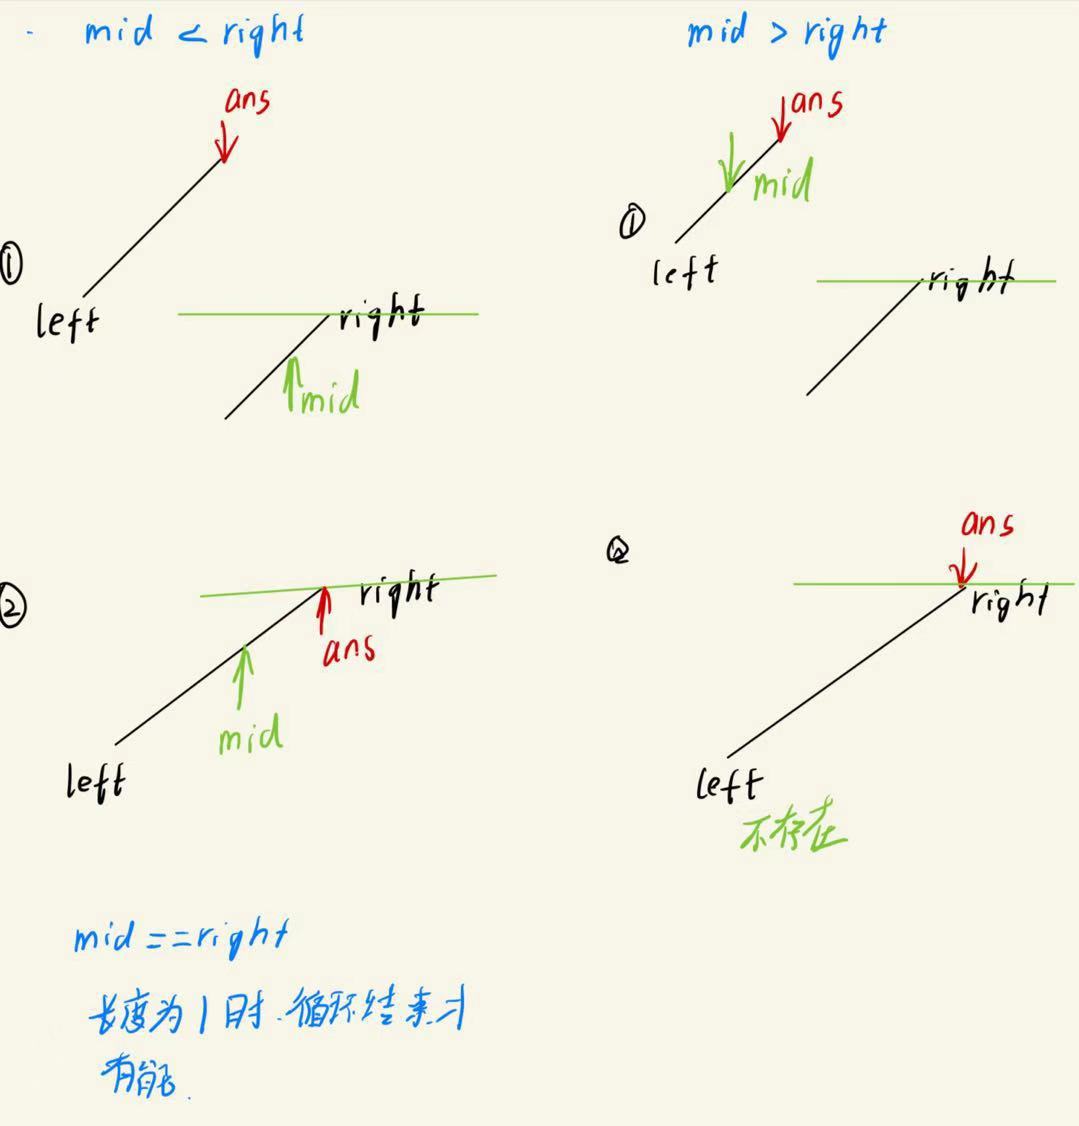 mid < right
mid > right
ans
①
left
right
mid
ans
mid
①
left
right
②
right
ans
mid
left
②
ans
right
left
不存在
mid ==right
长度为1时.循环结束才
有能.